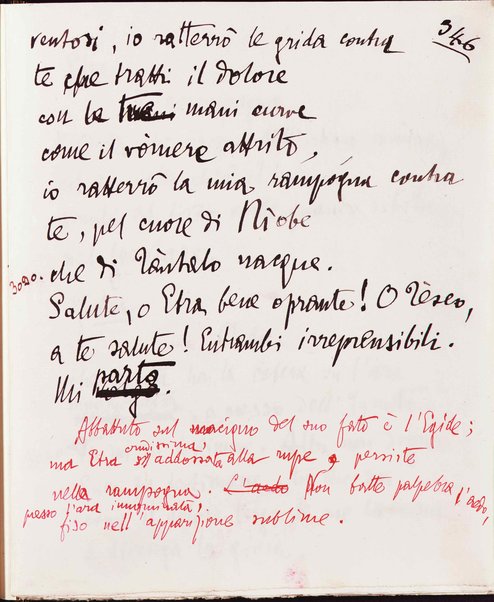 346
ventosi, io ratterrò le grida contra
te che tratti il dolore
con le mani curve
come il vòmere attrito,
io ratterrò la mia rampógna contra
te, pel cuore di Nìobe
3020. che di Tàntalo nacque.
Salute, o Etra bene oprante! O Tèseo,
a te salute! Entrambi irreprensibili.
Mi parto.
Abbattuto sul macigno del suo fato è l'Egide;
ma Etra crudissima, addossata alla rupe, persiste
nella rampogna. Non batte palpebra l'aedo,
presso l'ara innominata,
fiso nell'apparizione sublime.